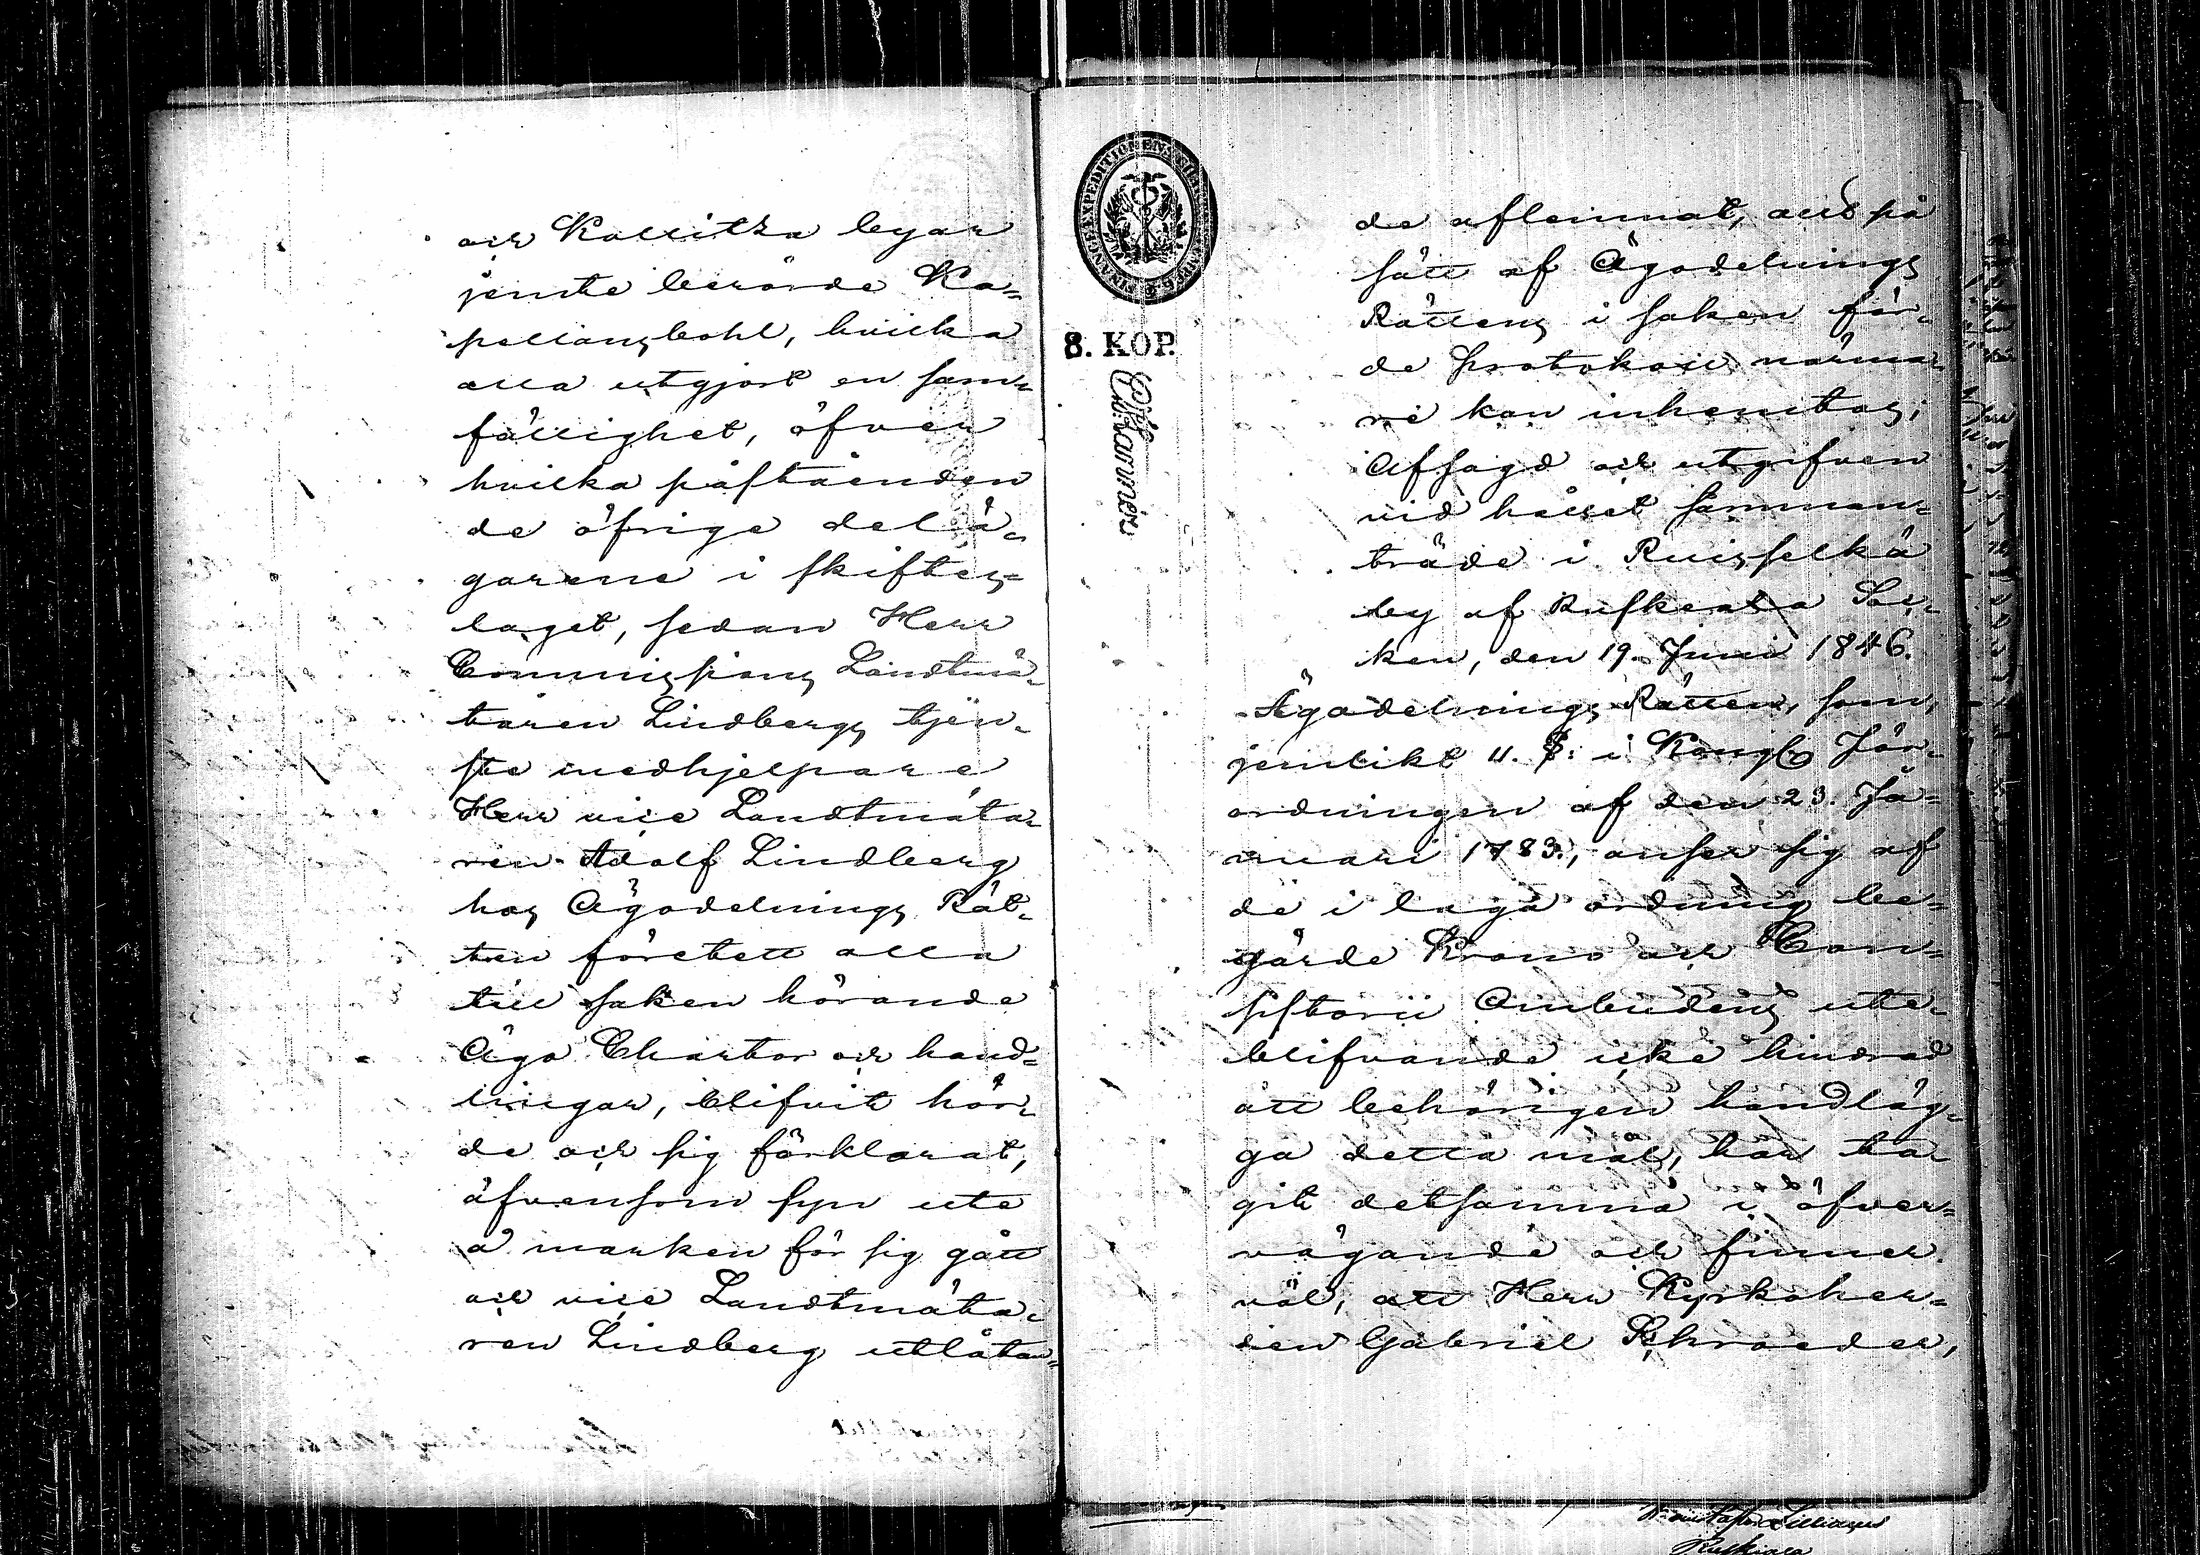 och Kallitka byar
jemte berörde Ka=
pellansbohl, hvilka
alla utgjort en sam=
fällighet, öfver
hvilka påståenden
de öfrige delä=
garene i skiftes=
laget, sedan Herr
Commissions Landtmä=
taren Lindbergs tjen=
ste medhjelpare
Herr vice Landtmäta=
ren Adolf Lindberg
hos Ägodelnings Rät=
ten företett alla
till saken hörande
Ägo Chartor och hand=
lingar, blifvit hör=
de och sig förklarat,
äfvensom syn ute
å marken för sig gått
och vice Landtmäta=
ren Lindberg utlåtan=
FINANCEEXPEDITIONENS
8. KOP.
de aflemnat, allt på
sätt af Ägodelnings
Rättens i saken för=
de protokoll närma=
re kan inhemtas;
Afsagd och utgifven
vid hållet samman=
träde i Ruisselkä
by af Ruskeala Soc=
ken, den 19. Juni 1846.
Ägodelnings Rätten, som,
jemlikt 11. §. i Kongl. För=
ordningen af den 23. Ja=
nuari 1783., anser sig af
de i laga ordning be=
gärde Krono och Con=
sistorii Ombudens ute=
blifvande icke hindrad
att behörigen handläg=
ga detta mål, har ta=
git detsamma i öfver=
vägande och finner
väl, att Herr Kyrkoher=
den Gabriel Schroeder,